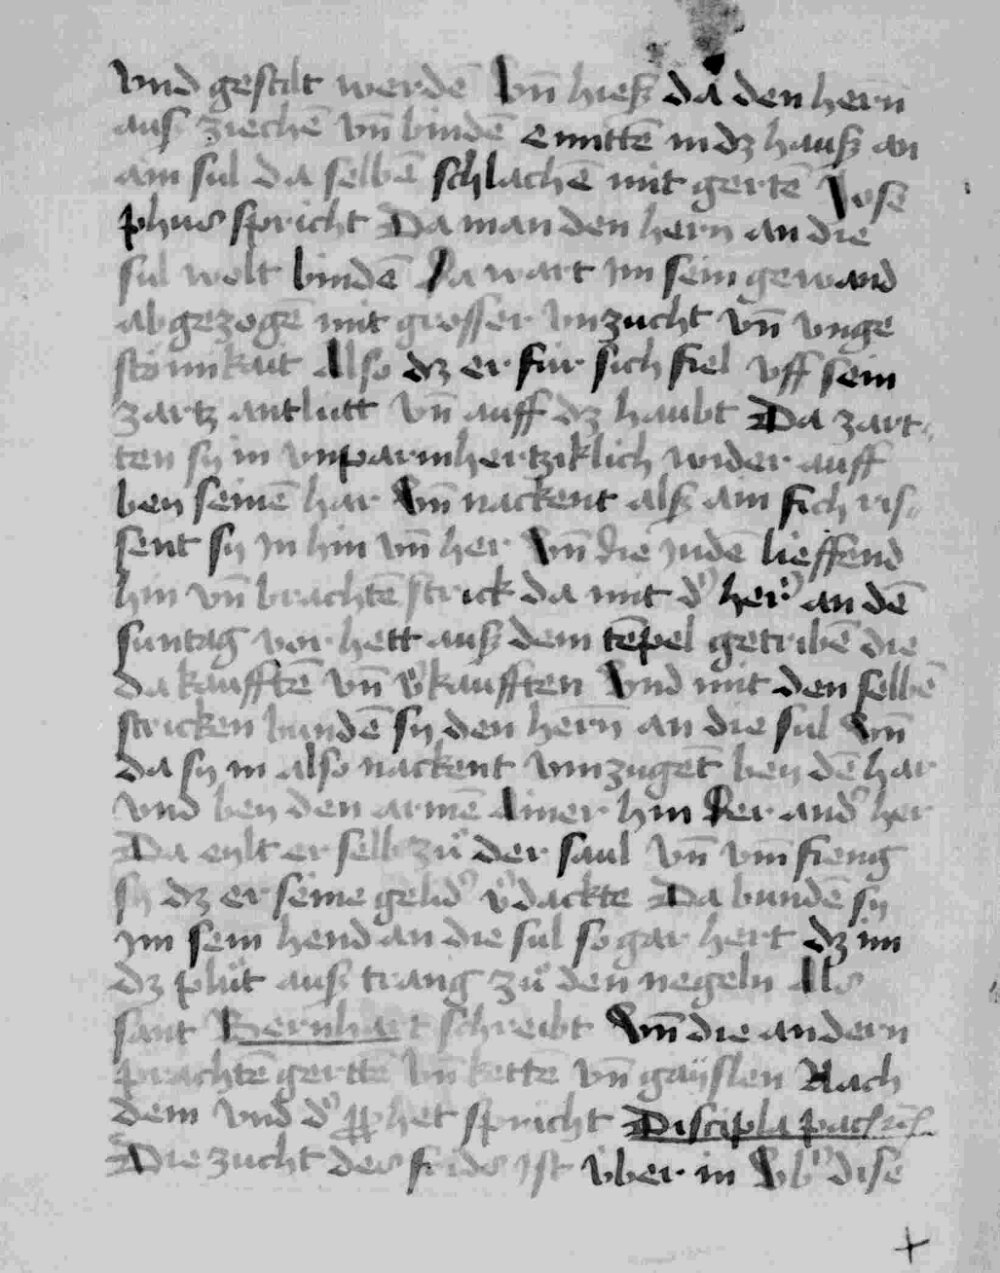 vnd gestilt werdē Vn̄ hieß da den hern̄
auß ziechē vn̄ bindē enmittē in dz hauß an
ain sul da selbē schlachē mit gertē Jose
phus spricht Da man den hern an die
sul wolt bindē Da wart im sein gewand
abgezogē mit grosser vnzucht vn̄ vnge
stömikait Also dz er für sich fiel vff sein
zartz antlütt vn̄ auff dz haubt Da zart
ten sy in vnparmhertziklich wider auff
bey seinē har Vn̄ nackent alß ain fich ris
sent sy in hin vn̄ her Vn̄ die judē lieffend
hin vn̄ brachtē strick da mit dˀ herˀ an dē
suntag vor hett auß dem tēpel getribē die
da kaufftē vn̄ vˀkaufften Vnd mit den selbē
stricken bundē sy den hern̄ an die sul Vn̄
da sy in also nackent vmzugēt bey dē har
vnd bey den armē Ainer hin Der andˀ her
Da eylt er selb zů der saul vn̄ vm̄ fieng
sy dz er seine gelidˀ vˀdackte Da bundē sy
im sein hend an die sul so gar hert dz im
dz plůt auß trang zů den negeln Als
sant Bernhart schreibt Vn̄ die andern
prachtē gerttē vn̄ kettē vn̄ gaÿslen Nach
dem vnd dˀ ꝓphet spricht Discipla pacis
Die zucht des frids ist vber in Vbˀ dise